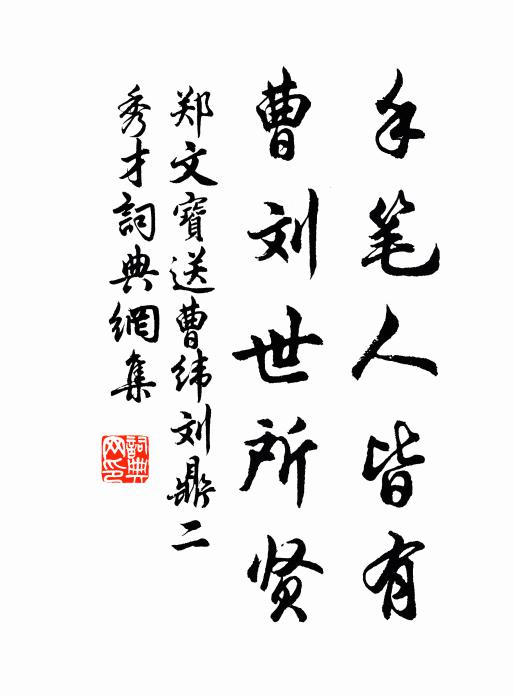 手笔人皆有
曹刘世所贤
郑文寳送曹纬刘鼎二
秀才詞典網集
詞典网印